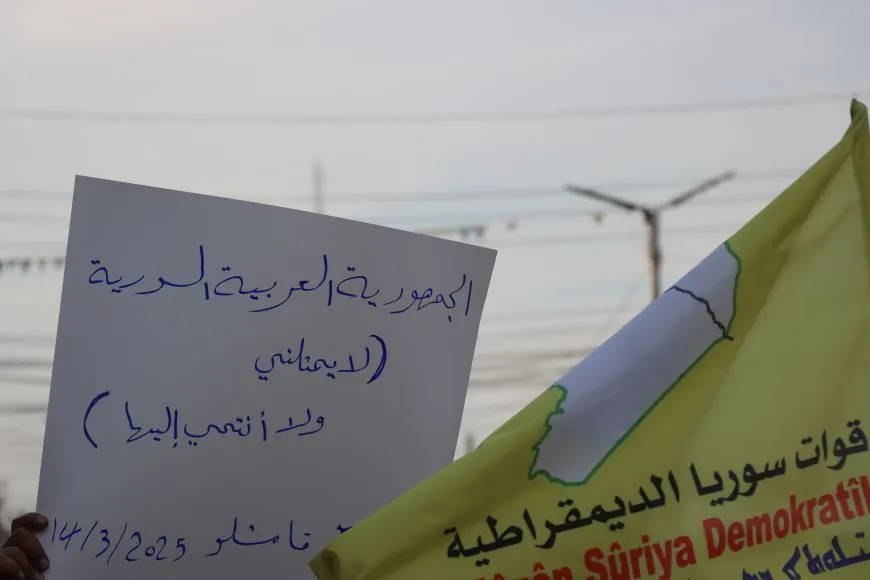 الجمهورية العربية السورية
(لا يمثلني
ولا أنتمي إليها)
قامشلو 14/3/2025
قوات سوريا الديمقراطية
Sûriya Demokratîk